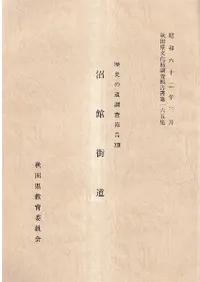 昭和六十二年三月
秋田県文化財調査報告書第一六五集
歴史の道調査報告XIII
沼館街道
秋田県教育委員会